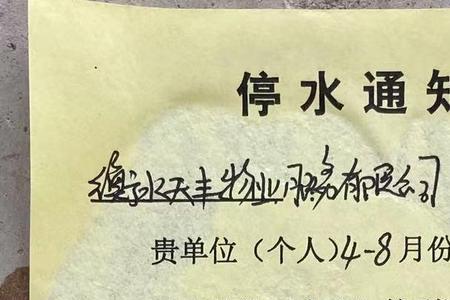 停水通知
衡水天丰物业服务有限公司
贵单位（个人）4-8月份